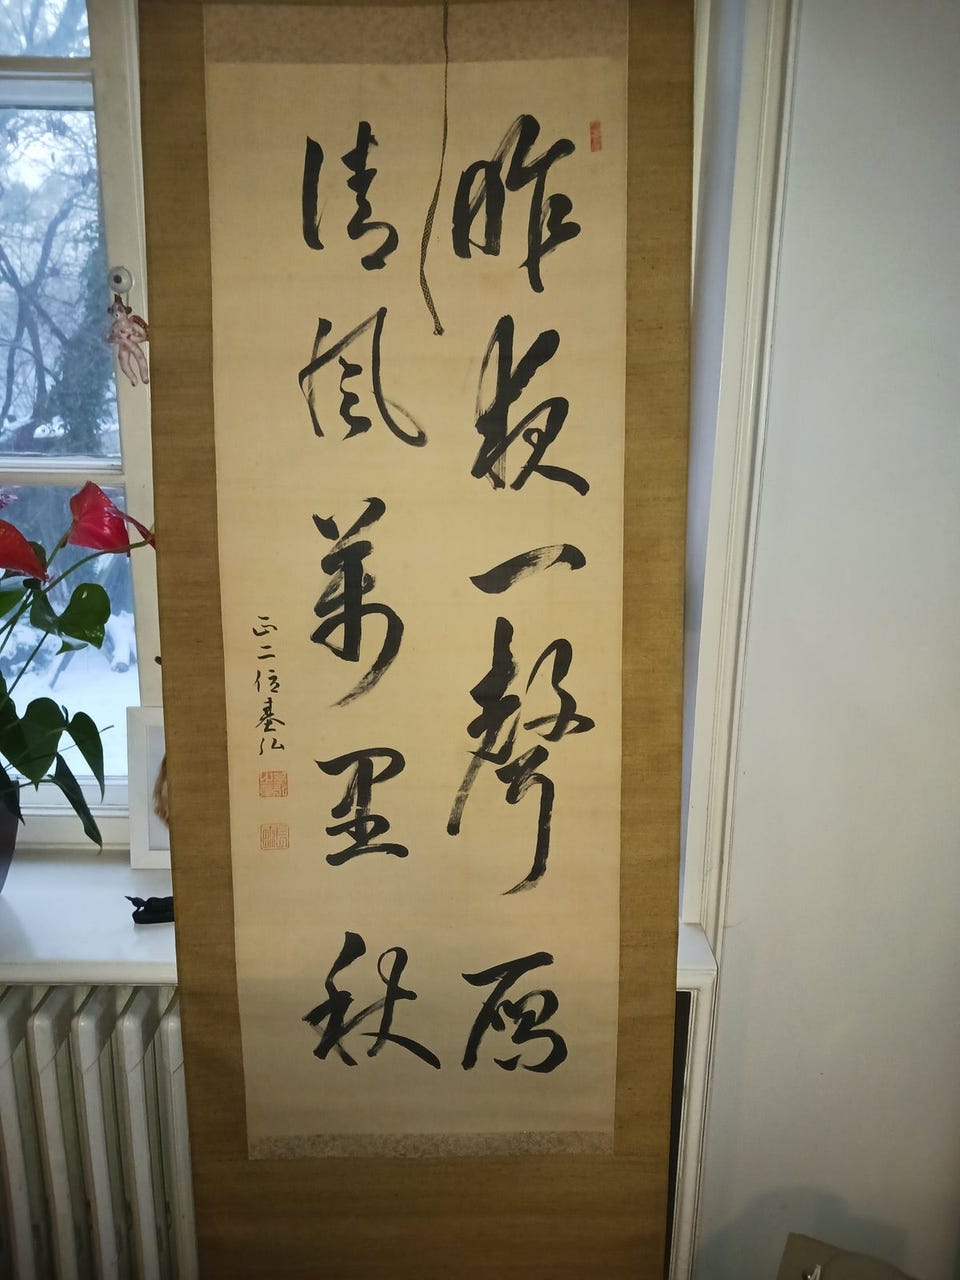 昨夜一聲鴈
清風萬里秋
正二位基弘